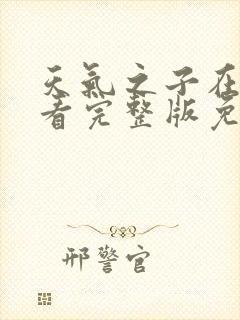 天氣之子在
看完整版免
邢警官